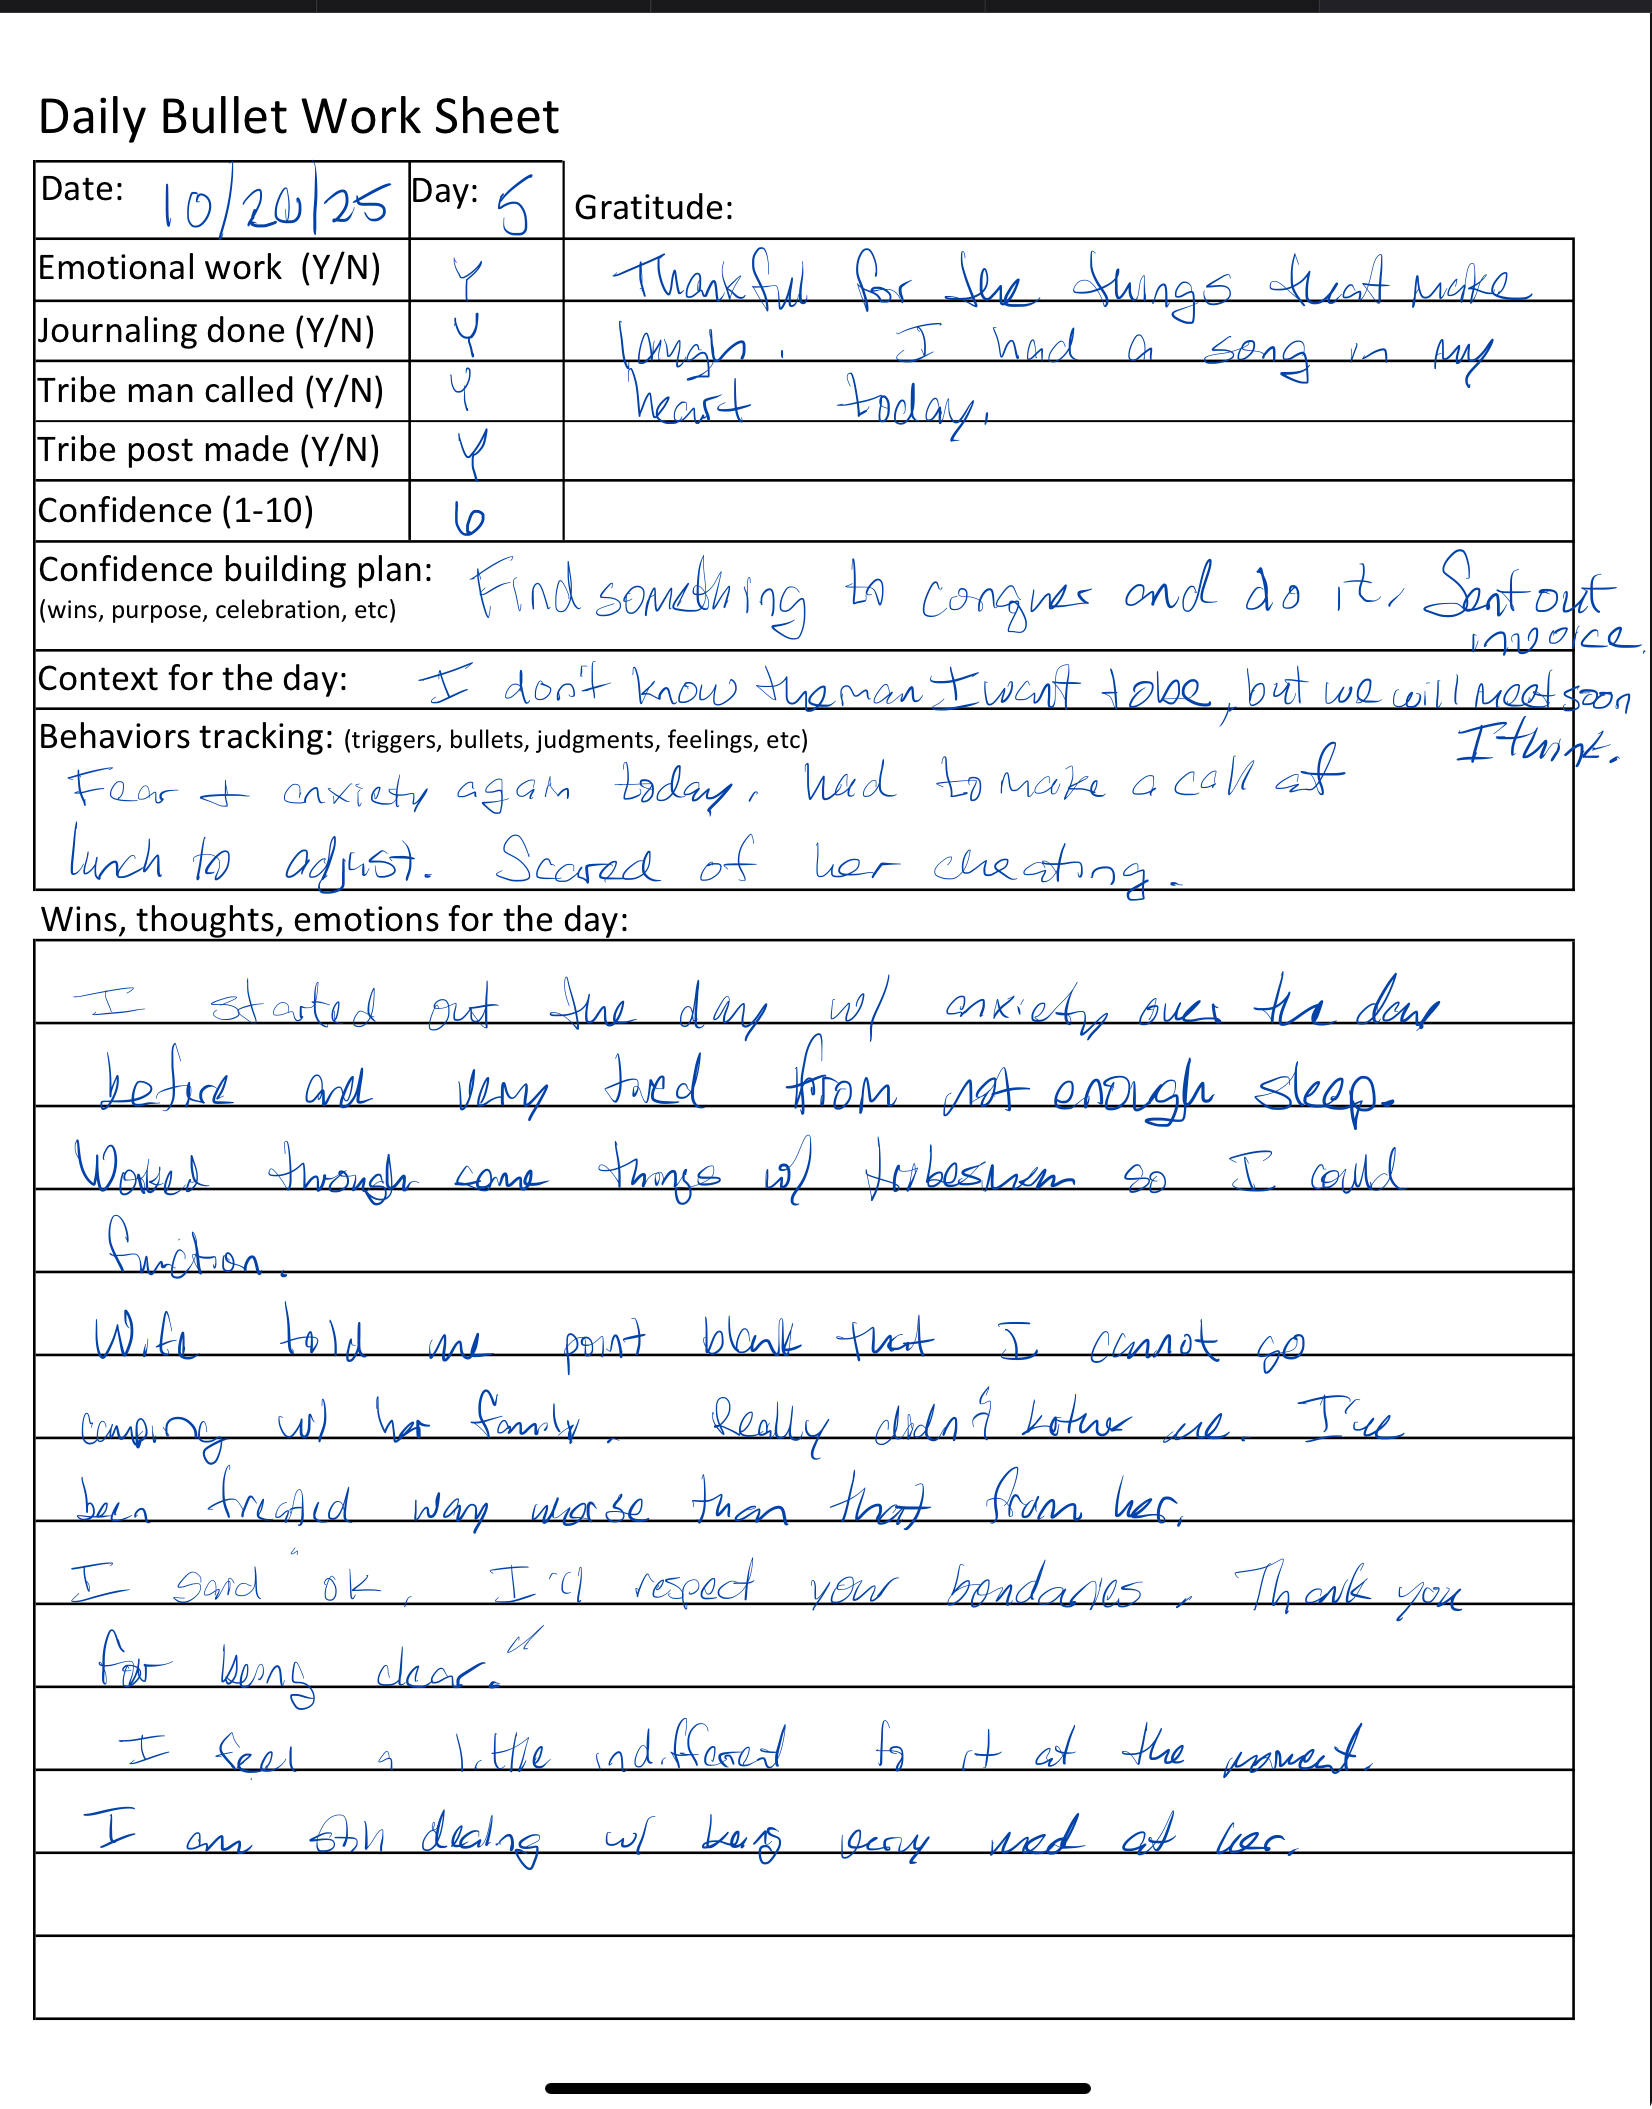 Daily Bullet Work Sheet
Date: 10/20/25 Day: 5 Gratitude:
Emotional work (Y/N) Y Thankful for the things that make
Journaling done (Y/N) Y laugh. I had a song in my
Tribe man called (Y/N) Y heart today.
Tribe post made (Y/N) Y
Confidence (1-10) 6
Confidence building plan: Find something to conquer and do it. Sent out
(wins, purpose, celebration, etc) invoice.
Context for the day: I don't know the man I want to be, but we will meet soon
I think.
Behaviors tracking: (triggers, bullets, judgments, feelings, etc)
Fear + anxiety again today. had to make a call at
lunch to adjust. Scared of her cheating.
Wins, thoughts, emotions for the day:
I started out the day w/ anxiety over the day
before and very tired from not enough sleep.
Worked through some things w/ tribesmen so I could
function.
Wife told me point blank that I cannot go
camping w/ her family. Really didn't bother me. I've
been treated way worse than that from her.
I said "ok, I'll respect your bondaries. Thank you
for being clear."
I feel a little indifferent to it at the moment.
I am still dealing w/ being very mad at her.